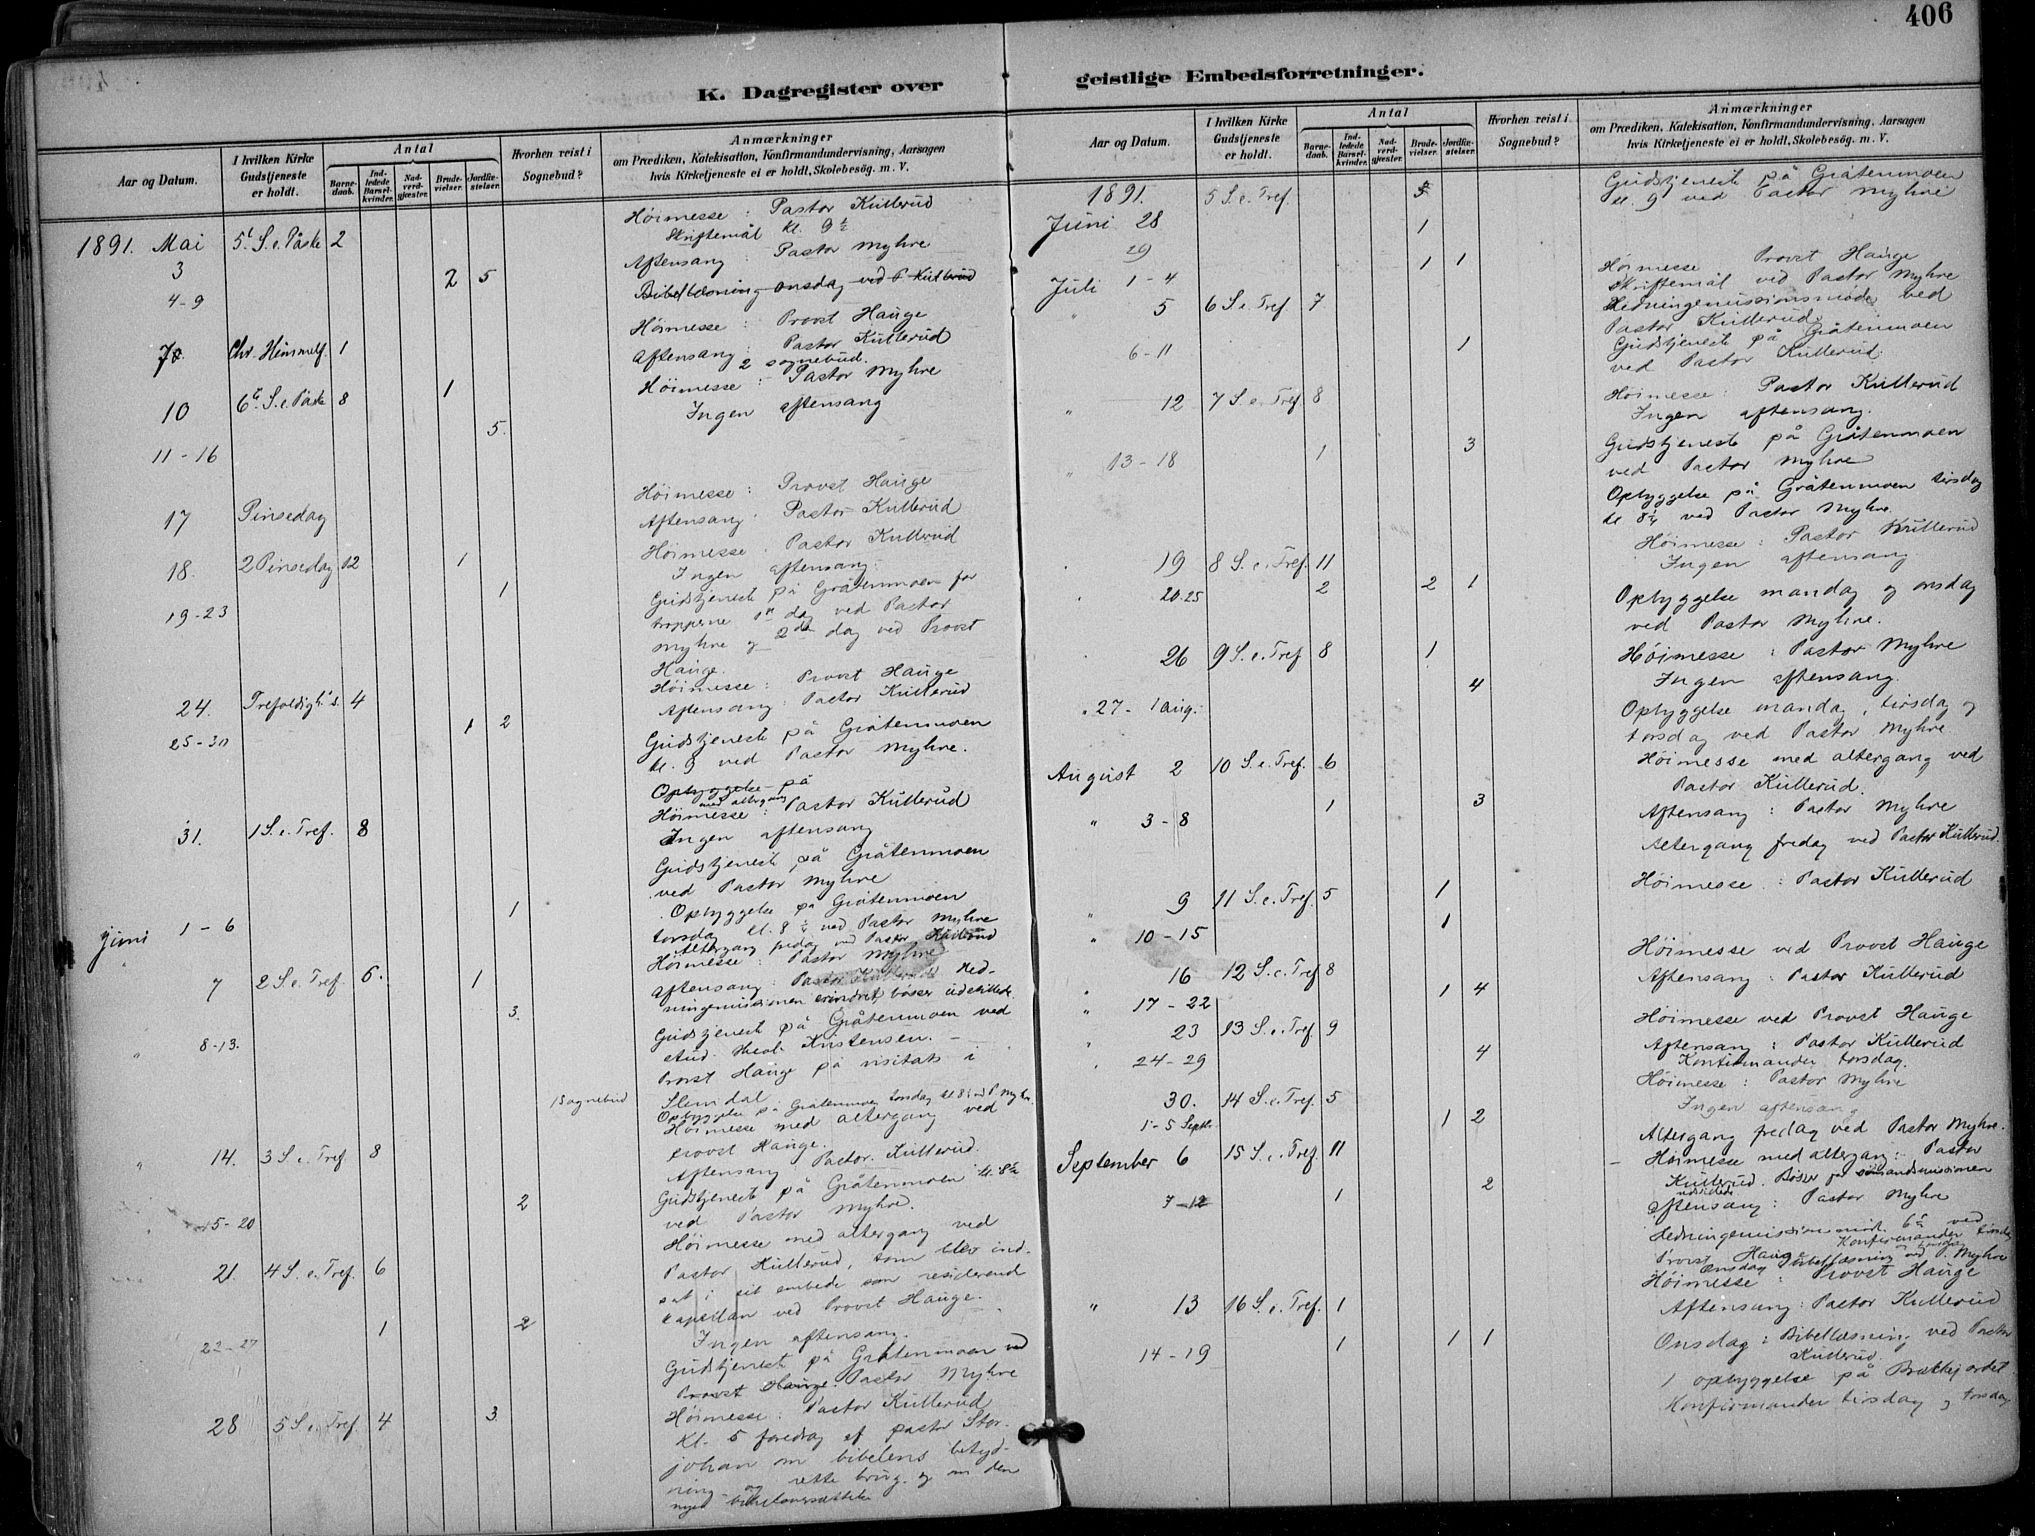 406
K. Dagregister over
geistlige Embedsforretninger.
Aar og Datum.
I hvilken Kirke Gudstjeneste er holdt.
Antal
Barnedaab.
Indledede Barselkvinder.
Nadverdgjester.
Brudevielser.
Jordfæstelser.
Hvorhen reist i Sognebud?
Anmærkninger
om Prædiken, Katekisation, Konfirmandundervisning, Aarsagen
hvis Kirketjeneste ei er holdt, Skolebesøg. m. V.
Høimesse: Pastor Kullerud
Skriftemål kl. 9½
1891. Mai 3 5t S. e. Påske 2
Aftensang: Pastor Myhre
4-9 2 5
Bibellæsning onsdag ved P Kullerud
Høimesse: Provst Hauge
7 Chr. Himmelf. 1
Aftensang: Pastor Kullerud
2 sognebud.
10 6te S. e. Påske 8 1
Høimesse: Pastor Myhre
Ingen aftensang
11-16 5.
17 Pinsedag
Høimesse: Provst Hauge
Aftensang: Pastor Kullerud
18. 2 Pinsedag 12 1
Høimesse: Pastor Kullerud
Ingen aftensang.
19-23 1
Gudstjeneste på Gråtenmoen for
tropperne 1ste dag ved Pastor
Myhre og 2den dag ved Provst
Hauge.
24. Trefoldigh. s. 4
Høimesse: Provst Hauge
Aftensang: Pastor Kullerud
25-30 1 2
Gudstjeneste på Gråtenmoen
kl. 9 ved Pastor Myhre.
Opbyggelse på
med altergang
31. 1 S. e. Tref. 8
Høimesse: Pastor Kullerud
Ingen aftensang
Gudstjeneste på Gråtenmoen
ved Pastor Myhre
Juni 1-6 1
Opbyggelse på Gråtenmoen
torsdag kl. 8½ ved Pastor Myhre
Altergang fredag ved Pastor Kullerud
7 2 S. e. Tref. 6. 1
Høimesse: Pastor Myhre
Aftensang: Pastor Kullerud Hed-
ningemissionen erindret, bøsser udstillede.
" 8-13. 3.
Gudstjeneste på Gråtenmoen ved
stud. theol. Kristensen. —
Provst Hauge på visitats i
1 Sognebud Slemdal
Opbyggelse på Gråtenmoen torsdag kl 8½ ved P. Myhre.
" 14. 3 S. e. Tref 8
Høimesse med altergang ved
Provst Hauge.
Aftensang Pastor Kullerud.
15-20 2
Gudstjeneste på Gråtenmoen kl. 8½
ved Pastor Myhre.
21. 4 S. e. Tref. 6
Høimesse med altergang ved
Pastor Kullerud, som blev ind-
sat i sit embede som residerende
kapellan ved Provst Hauge.
22-27 1 2
Ingen aftensang.
Gudstjeneste på Gråtenmoen ved
Provst Hauge. Pastor Myhre
28 5 S. e. Tref. 4 3
Høimesse: Pastor Kullerud
Kl. 5 foredrag af pastor Stor-
johan om bibelens betyd-
ning og rette brug. og om den
nye bibeloversættelse
Aar og Datum.
I hvilken Kirke Gudstjeneste er holdt.
Antal
Barnedaab.
Indledede Barselkvinder.
Nadverdgjester.
Brudevielser.
Jordfæstelser.
Hvorhen reist i Sognebud?
Anmærkninger
om Prædiken, Katekisation, Konfirmandundervisning, Aarsagen
hvis Kirketjeneste ei er holdt, Skolebesøg. m. V.
1891. 5 S. e. Tref.
Gudstjeneste på Gråtenmoen
kl. 9 ved Pastor Myhre
Juni 28 1
29
Juli 1-4 1 1
" 5 6 S. e. Tref 7
Høimesse Provst Hauge
Skriftemål ved Pastor Myhre
Hedningemissionsmøde ved
Pastor Kullerud
6-11 1
Gudstjeneste på Gråtenmoen
ved Pastor Kullerud.
" 12 7 S. e. Tref. 8
Høimesse: Pastor Kullerud
Ingen aftensang.
" 13-18 1 3
Gudstjeneste på Gråtenmoen
ved Pastor Myhre
Opbyggelse på Gråtenmoen tirsdag
kl 8½ ved Pastor Myhre.
19 8 S. e. Tref. 11
Høimesse: Pastor Kullerud
Ingen aftensang
20-25 2 2 1
Opbyggelse mandag og onsdag
ved Pastor Myhre.
26 9 S. e. Tref 8 1
Høimesse: Pastor Myhre
Ingen aftensang.
" 27 - 1 aug. 4
Opbyggelse mandag, tirsdag og
torsdag ved Pastor Myhre
August 2 10 S. e. Tref. 6
Høimesse med altergang ved
Pastor Kullerud.
" 3-8 1 3
Aftensang: Pastor Myhre
Altergang fredag ved Pastor Kullerud.
" 9 11 S. e. Tref. 5 1
Høimesse: Pastor Kullerud
" 10-15 1
16 12 S. e. Tref 8
Høimesse ved Provst Hauge
Aftensang: Pastor Kullerud
" 17-22 1 4
23 13 S. e. Tref. 9
Høimesse ved Provst Hauge
Aftensang: Pastor Kullerud
" 24-29 4
Konfirmander torsdag.
30. 14 S. e. Tref. 5
Høimesse: Pastor Myhre
Ingen aftensang
1-5 Septbr. 1 2
Altergang fredag ved Pastor Myhre.
September 6 15 S. e. Tref. 11
Høimesse med altergang: Pastor
Kullerud. Bøser for sømandsmissionen
udstillede
7-12 1 2
Aftensang: Pastor Myhre
Hedningemissionsmøde 6te ved
Provst Hauge Konfirmander tirsdag torsdag
Onsdag Bibellæsning ved P. Myhre
" 13 16 S. e. Tref. 1
Høimesse: Provst Hauge
Aftensang: Pastor Kullerud
14-19 1 1 1
Onsdag: Bibellæsning ved Pastor
Kullerud.
1 opbyggelse på Brækkejordet
Konfirmander tirsdag og torsdag